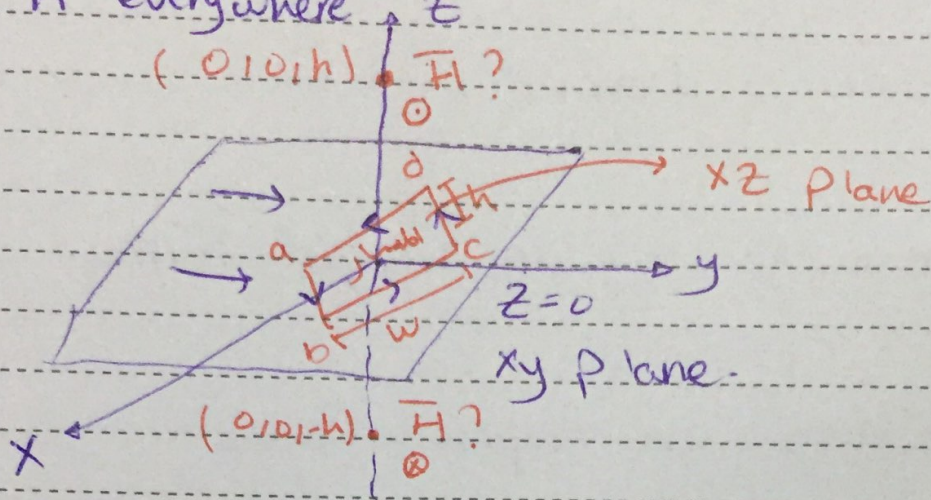 H everywhere Z
(0,0,h) H̅ ?
d
h
xz plane
a
c
y
z=0
w
b
xy plane.
(0,0,-h) H̅ ?
X